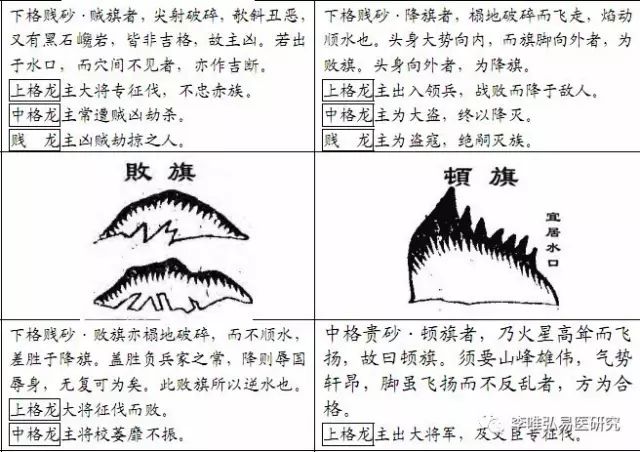 下格贱砂·贼旗者，尖射破碎，欹斜丑恶，
又有黑石巉岩，皆非吉格，故主凶。若出
于水口，而穴间不见者，亦作吉断。
上格龙主大将专征伐，不忠赤族。
中格龙主常遭贼凶劫杀。
贱 龙主凶贼劫掠之人。
下格贱砂·降旗者，榻地破碎而飞走，焰动
顺水也。头身大势向内，而旗脚向外者，为
败旗。头身向外者，为降旗。
上格龙主出入领兵，战败而降于敌人。
中格龙主为大盗，终以降灭。
贱 龙主为盗寇，绝嗣灭族。
敗旗
頓旗
宜居水口
下格贱砂·败旗亦榻地破碎，而不顺水，
差胜于降旗。盖胜负兵家之常，降则辱国
辱身，无复可为矣。此败旗所以逆水也。
上格龙大将征伐而败。
中格龙主将校萎靡不振。
中格贵砂·顿旗者，乃火星高耸而飞
扬，故曰顿旗。须要山峰雄伟，气势
轩昂，脚虽飞扬而不反乱者，方为合
格。
上格龙主出大将军，及文臣专征伐。
李唯弘易医研究